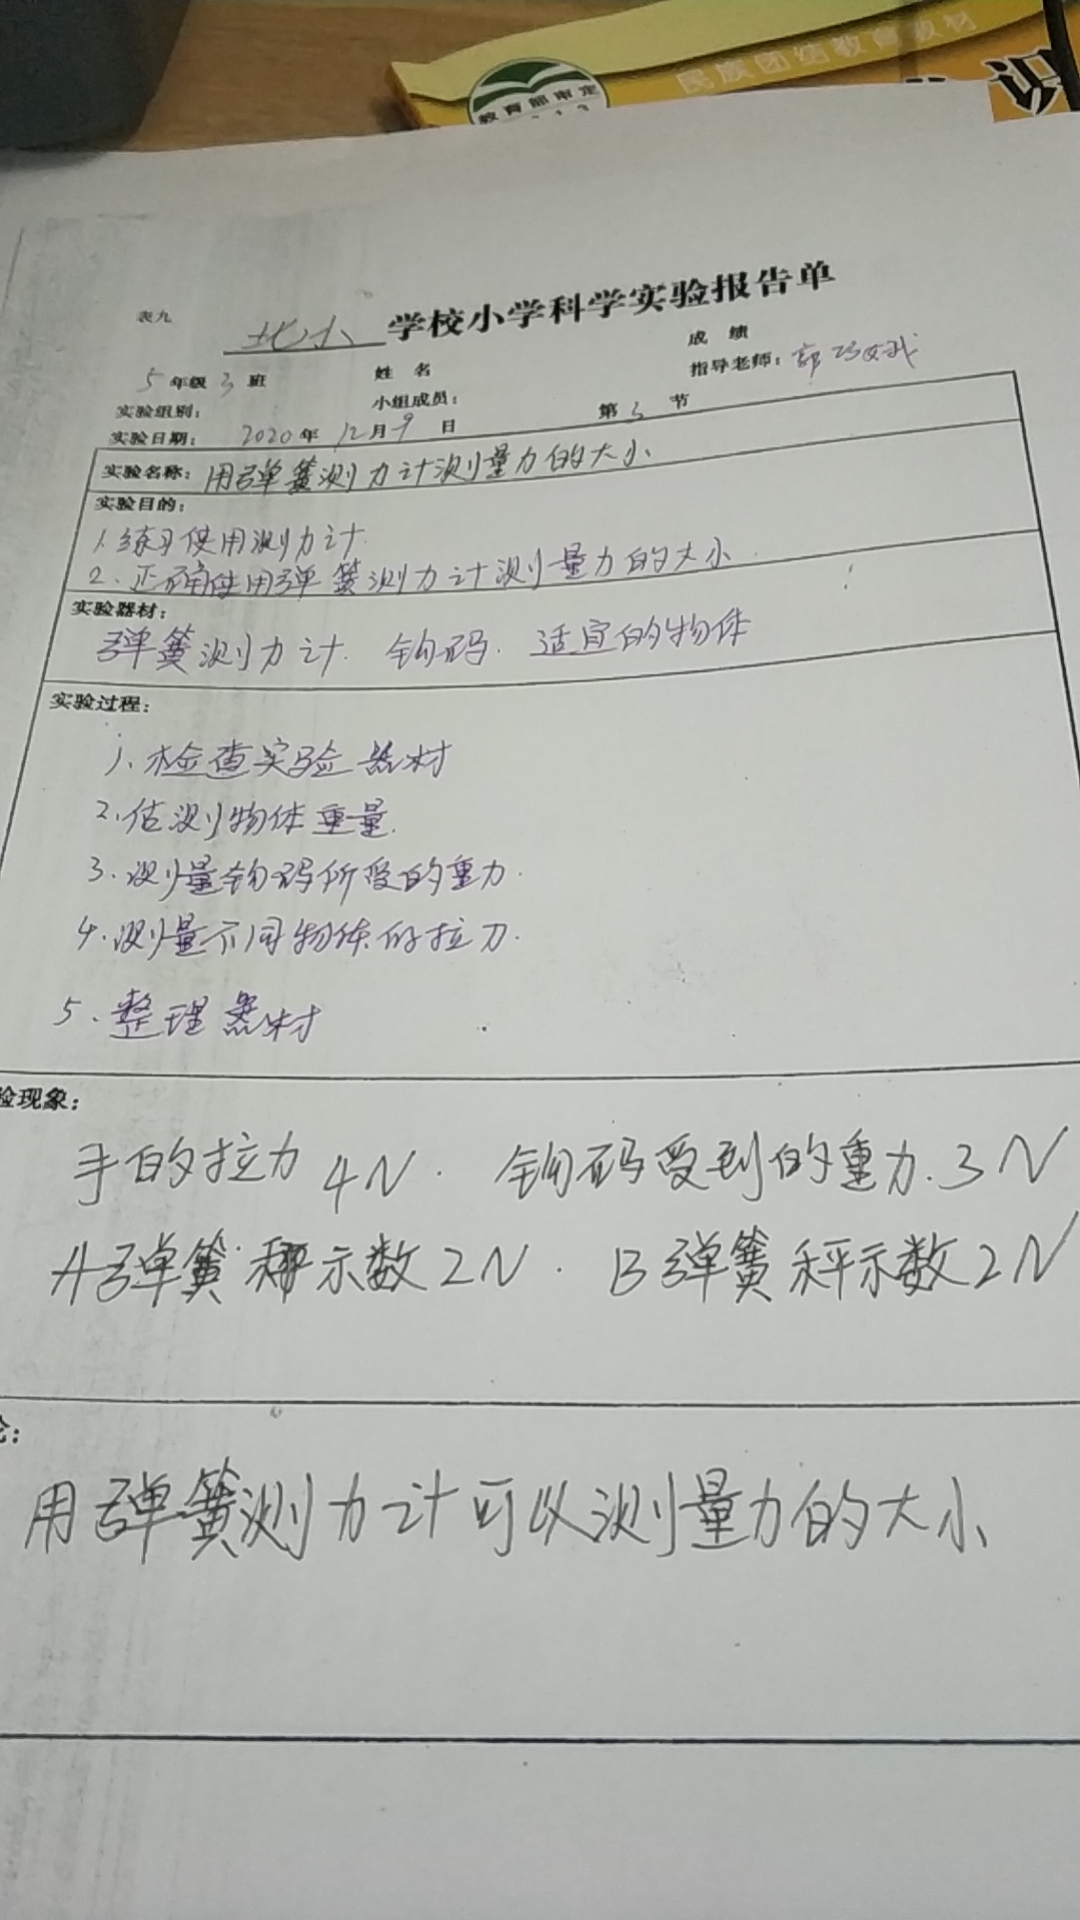 民族团结教育教材
教育部审定
识
表九
北小 学校小学科学实验报告单
成 绩
5年级3班 姓 名 指导老师：郭巧
实验组别： 小组成员：
实验日期： 2020年12月9日 第3节
实验名称：用弹簧测力计测量力的大小
实验目的：
1.练习使用测力计
2.正确使用弹簧测力计测量力的大小.
实验器材：
弹簧测力计. 钩码. 适宜的物体
实验过程：
1.检查实验器材
2.估测物体重量.
3.测量钩码所受的重力.
4.测量不同物体的拉力.
5.整理器材
验现象：
手的拉力4N. 钩码受到的重力.3N
A弹簧秤示数2N. B弹簧秤示数2N
论：
用弹簧测力计可以测量力的大小